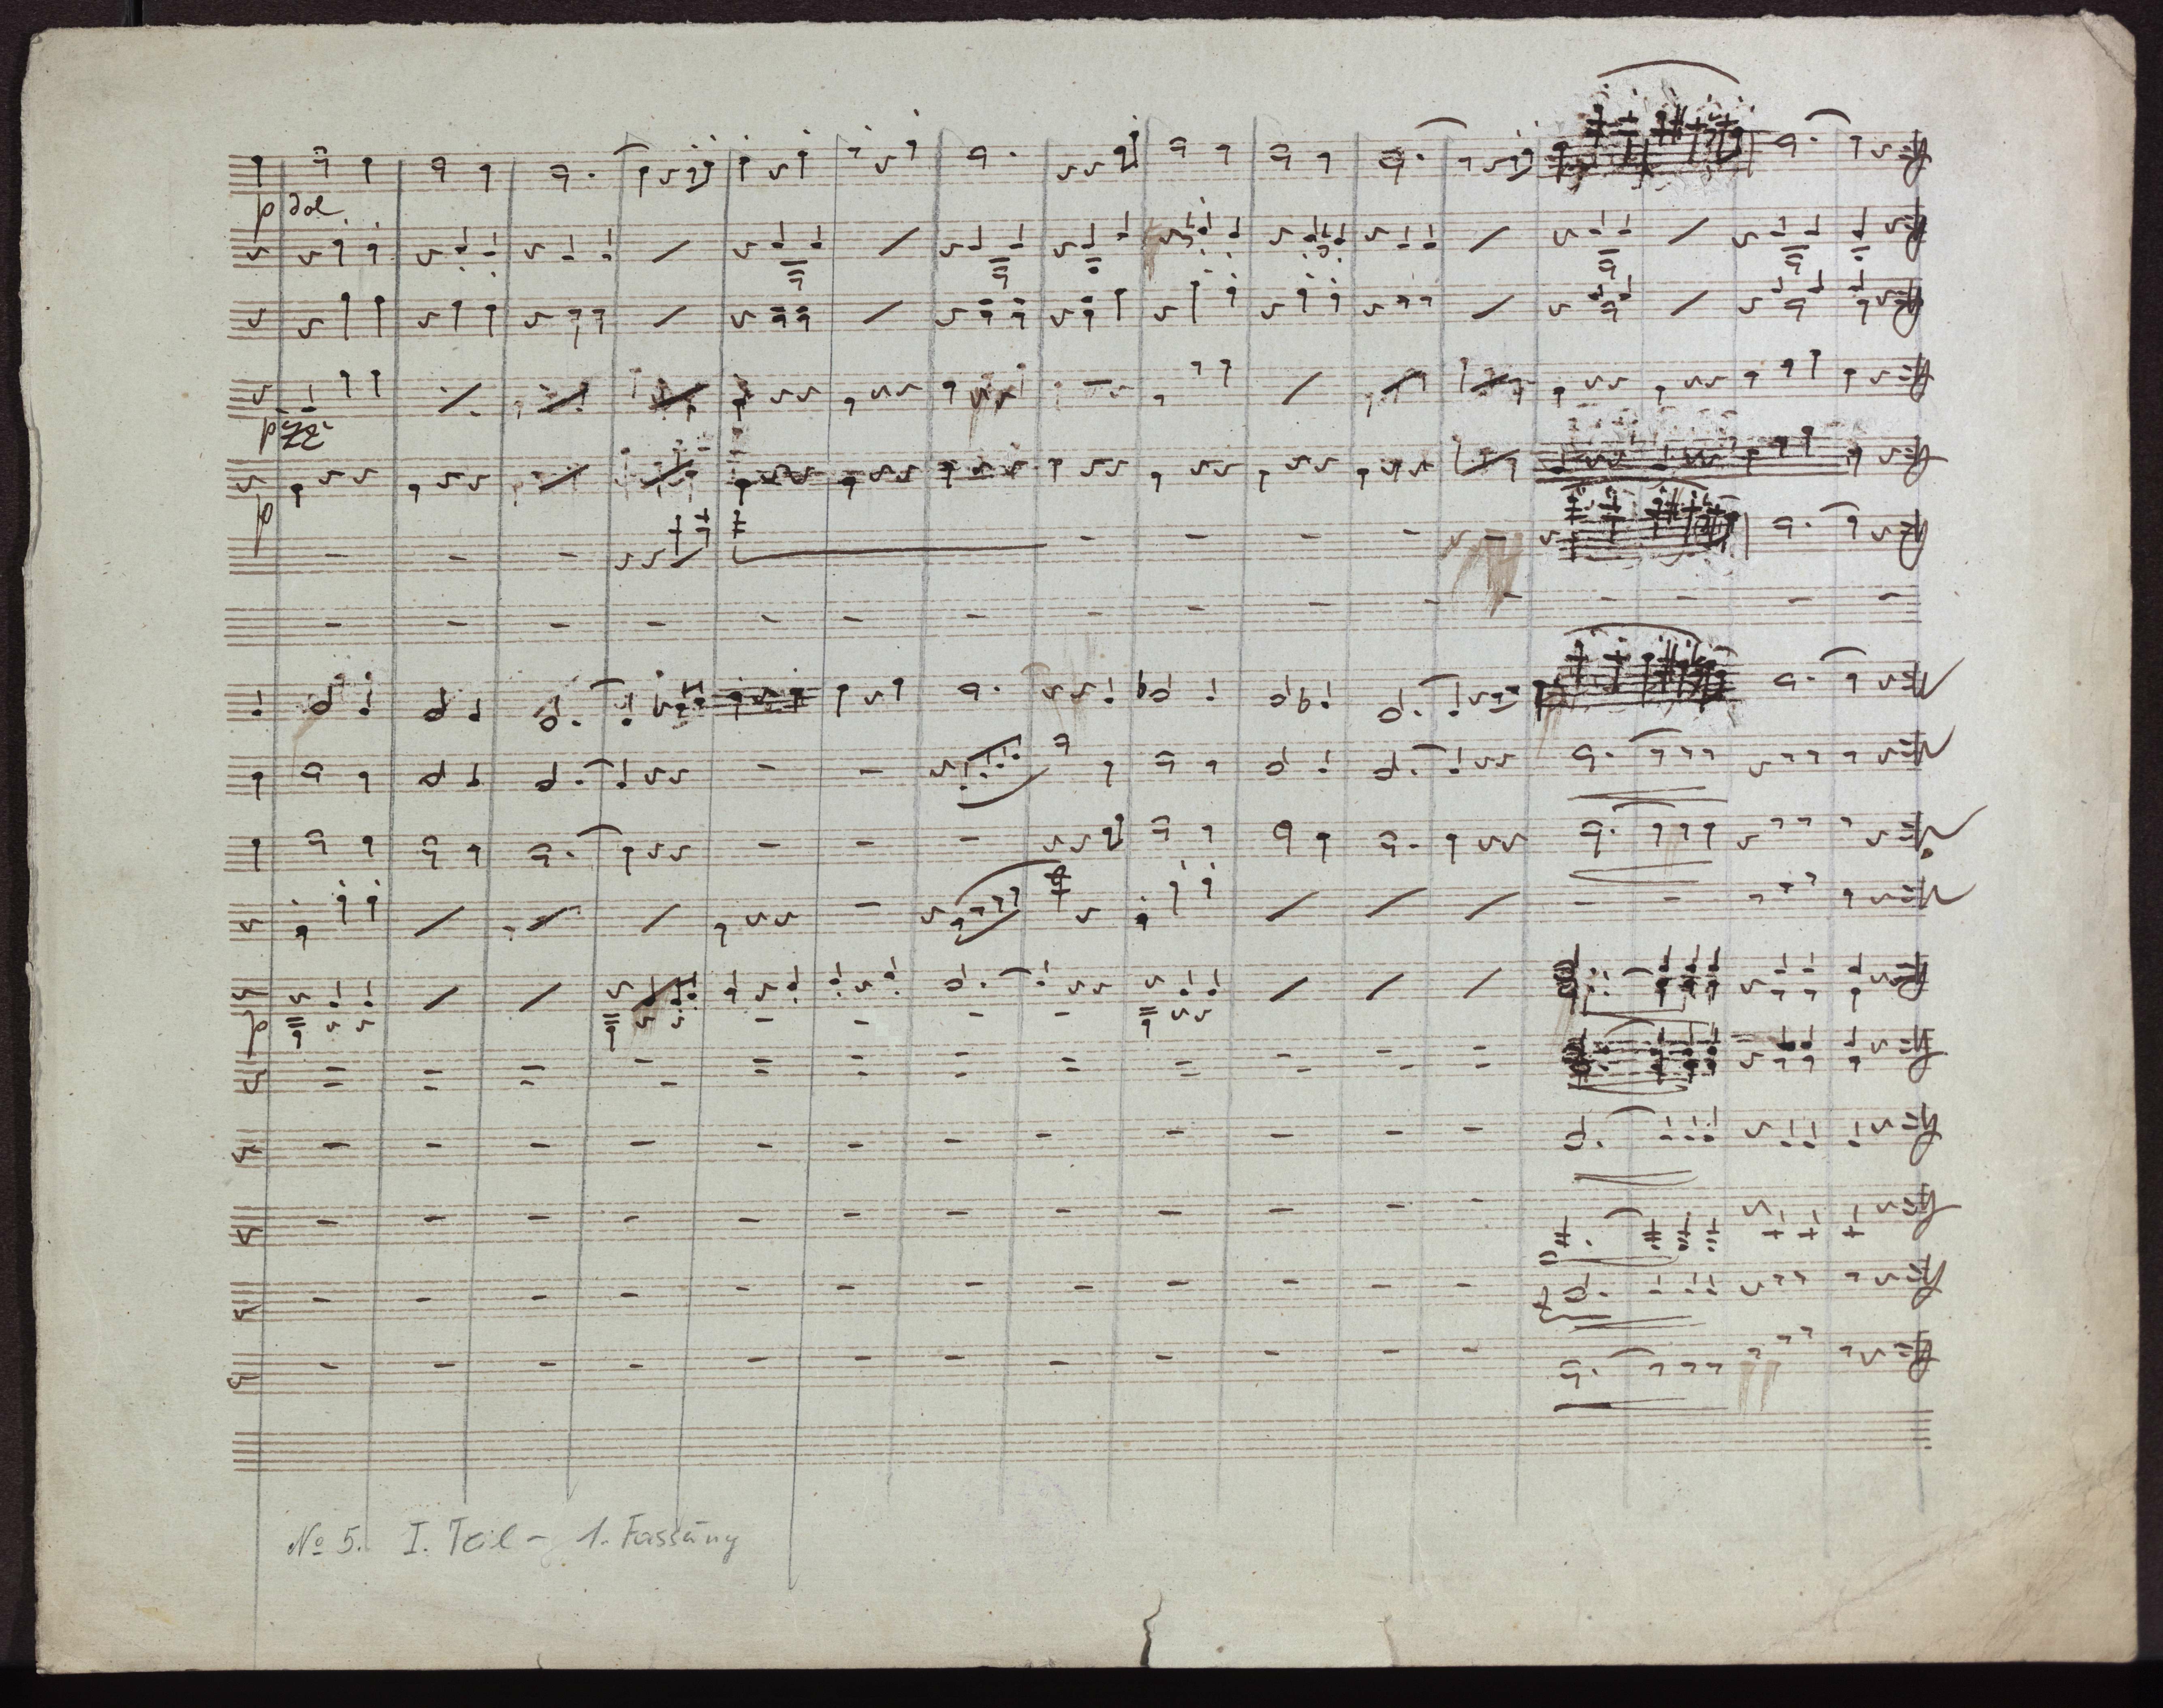 p dol.
p
p
p
No 5. I. Teil – 1. Fassung